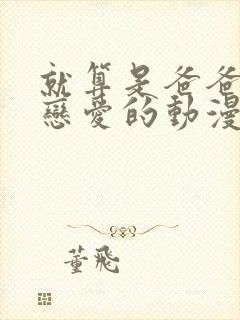 就算是爸爸
戀愛的動漫
董飛